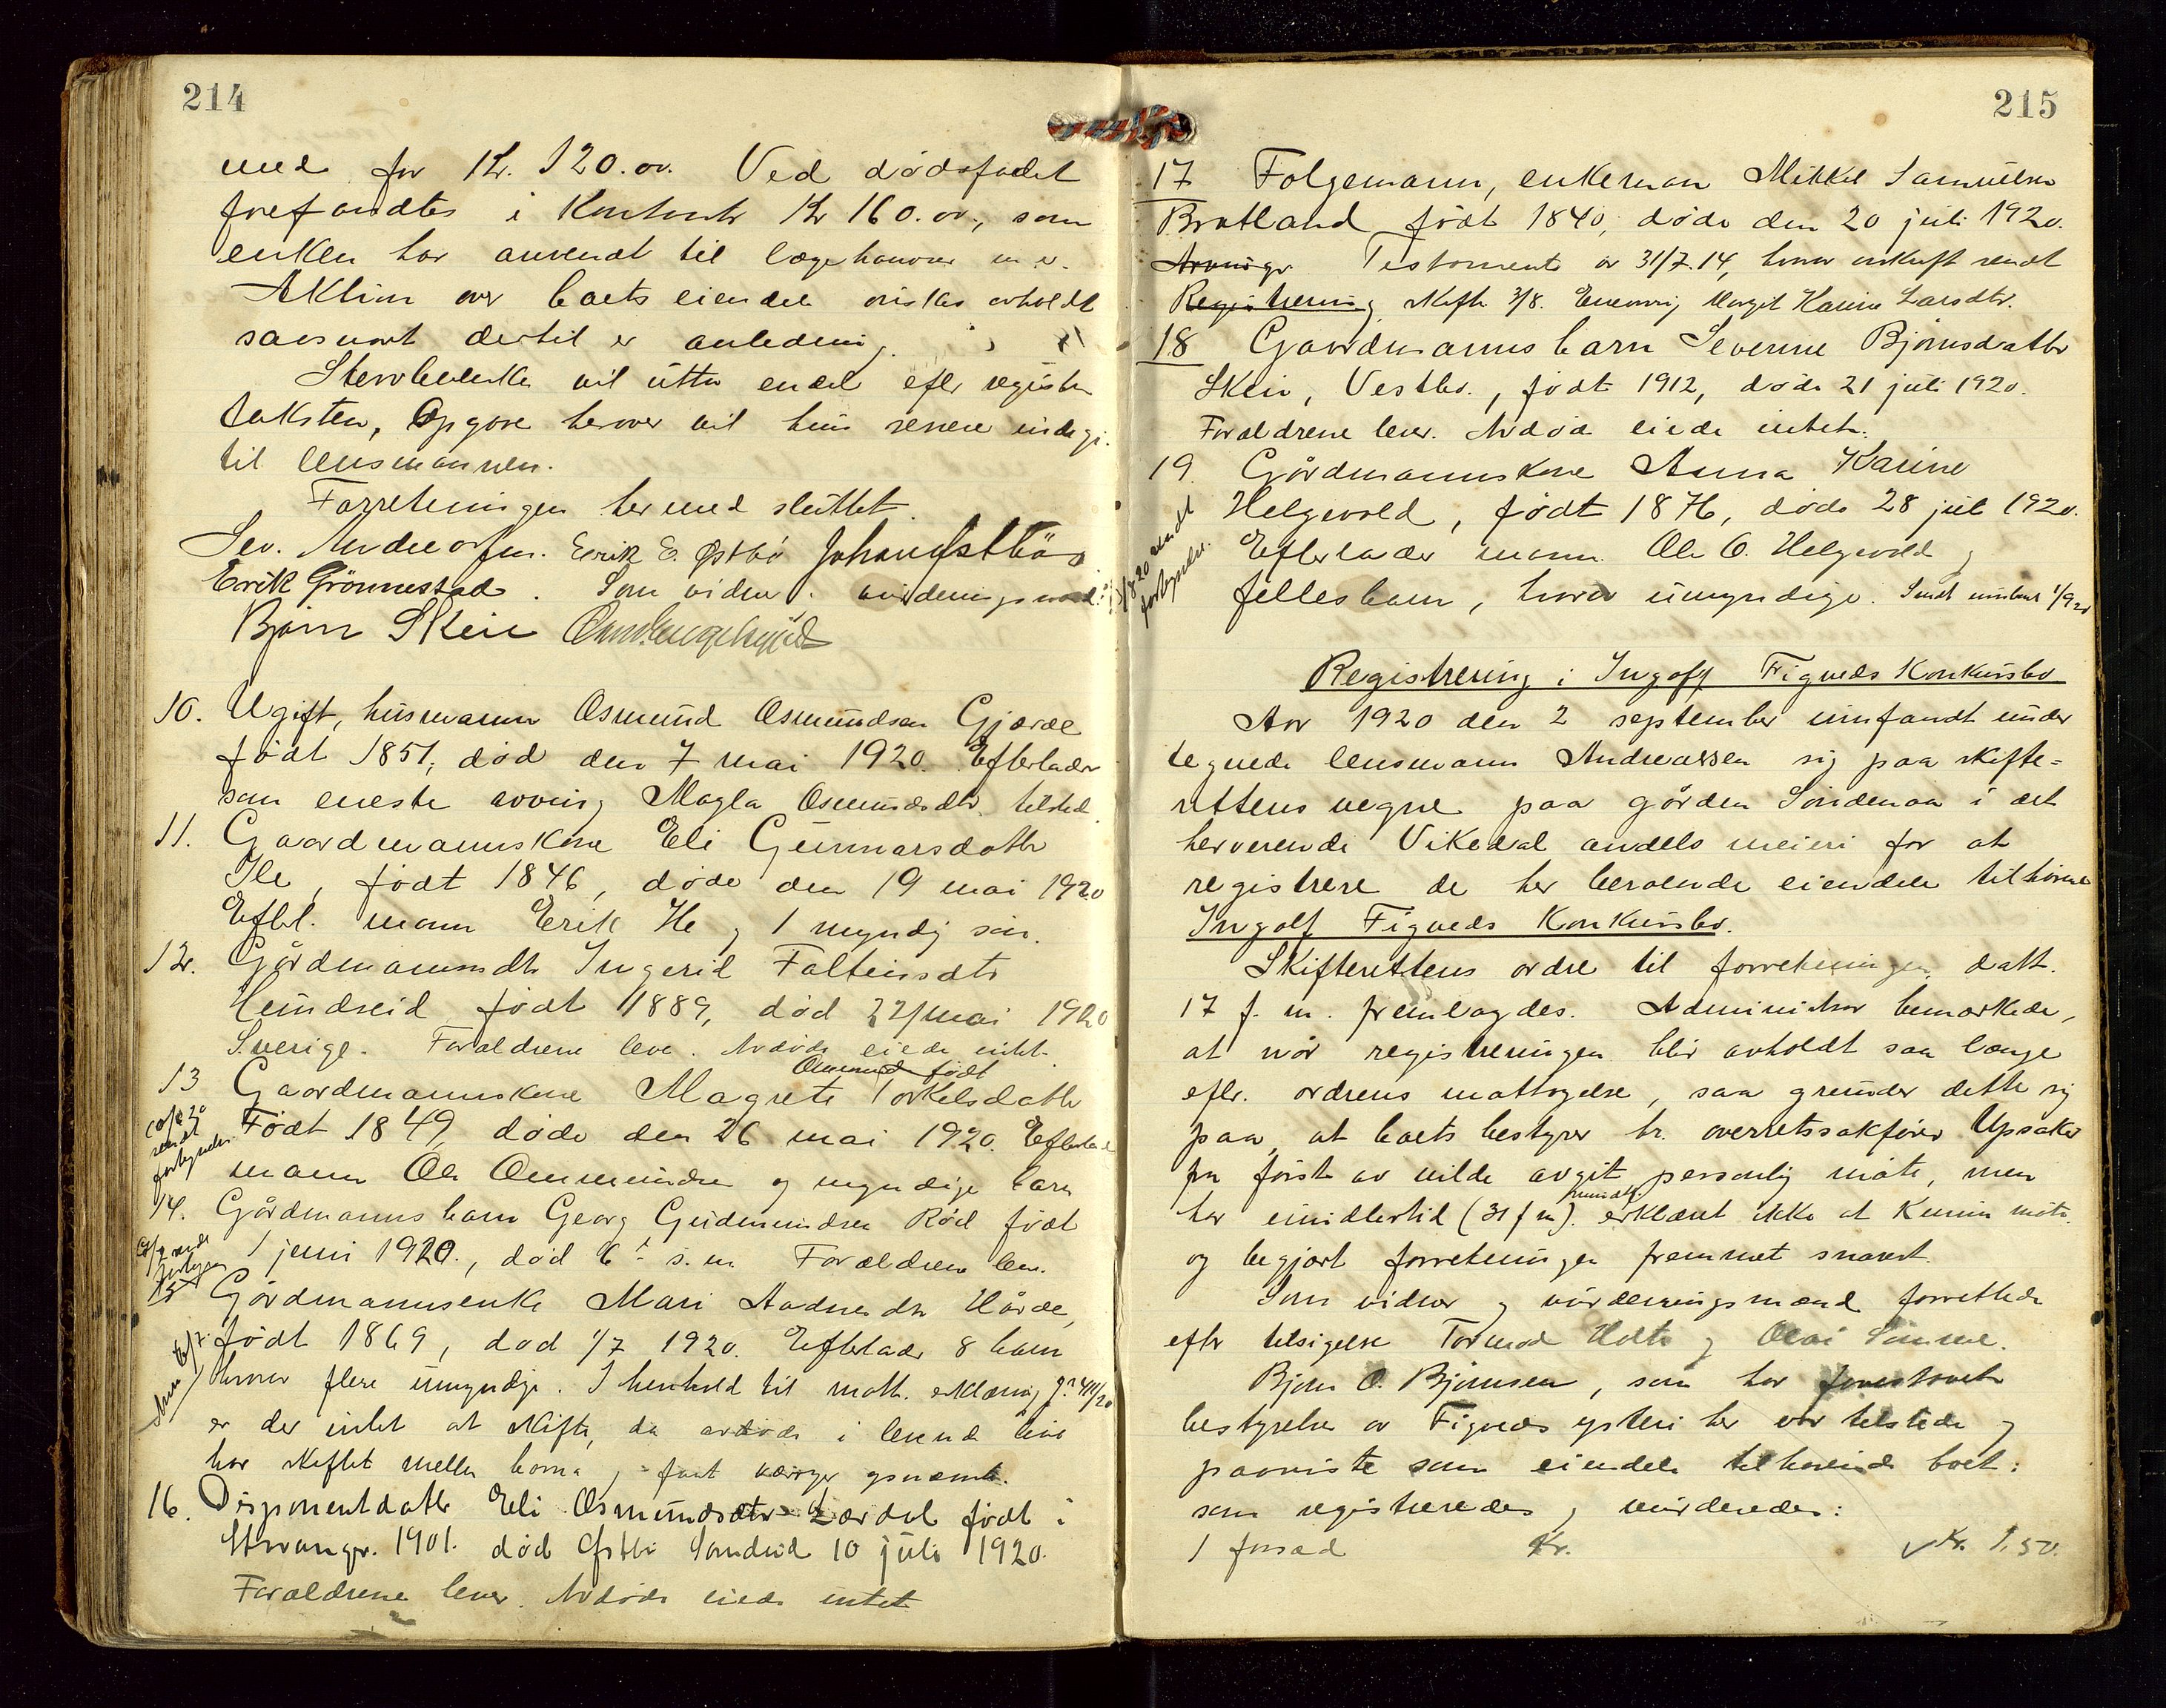 214
med for Kr. 120.00. Ved dødsfaldet
forefandtes i Kontanter Kr 160.00, som
enken har anvendt til lægehonorar m. v.
Aktion over boets eiendele ønskes avholdt
saasnart dertil er anledning.
Stervboenken vil utta endel efter registr
taksten, Opgave herover vil hun senere indgi
til lensmannen.
Forretningen hermed sluttet.
Sev. Andreassen. Eirik E. Østbö Johan Østbö
Eirik Grönnestad. Som vidner & vurderingsmænd:
Bjørn Skeie
10. Ugift, husmann Osmund Osmundsen Gjerde
født 1851, død den 7 mai 1920. Efterlader
som eneste arving Magla Osmundsdtr. tilsted.
11. Gaardmannskone Eli Gunnarsdatter
Ile, født 1846, døde den 19 mai 1920
Efterl. mann Eirik Ile og 1 myndig søn.
12. Gårdmannsdtr Ingerid Falteinsdtr
Hundseid født 1889, død 22/mai 1920
Sverige. Forældrene leve. Avdøde eiede intet.
Ommund født
13 Gaardmannskone Magrete Torkelsdatter
Født 1849, døde den 26 mai 1920. Efterlader
mann Ole Ommundsen og myndige barn
sendt
fortegnelse
14. Gårdmanns barn Georg Gudmundsen Rød født
1 juni 1920., død 6 s. m Forældrene leve.
15 Gårdmannsenke Mari Aadnesdtr Hårde,
født 1869, død 1/7 1920. Efterlader 8 barn
hvorav flere umyndige. I henhold til mott. erklæring
er der intet at skifte, da avdøde i levende live
har skiftet mellem barna og faat værger opnævnt.
16. Disponentdatter Eli Osmundsdtr Lærdal født i
Stavanger. 1901. død Østbö Sandeid 10 juli 1920.
Forældrene lever. Avdøde eiede intet
215
17 Følgemann, enkeman Mikkel Samuelsen
Bratland født 1840, døde den 20 juli 1920.
Arvinger Testamente av 31/7.14, hvorav avskrift sendt
Registrering, skifte 3/8. Enearving Marget Karine Larsdtr.
18 Gaardmanns barn Severine Bjørnsdatter
Skeie, Vestbø., født 1912, døde 21 juli 1920.
Forældrene lever. Avdøde eiede intet.
19. Gårdmannskone Anna Karine
Helgevold, født 1876, døde 28 juli 1920.
Efterlader mann Ole O. Helgevold og
fellesbarn, hvorav umyndige. Sendt 1/9 20
sendt
fortegnelse.
Registrering i Ingolf Figveds Konkursbo
Aar 1920 den 2 september innfandt under
tegnede lensmann Andreassen sig paa skifte-
rettens vegne paa gården Söndenaa i det
herverende Vikedal andels meieri for at
registrere de her beroende eiendele tilhørende
Ingolf Figveds Konkursbo.
Skifterettens ordre til forretningen datt.
17 f. m. fremlagdes. Administrator bemærkede,
at når registreringen blir avholdt saa længe
efter ordrens mottagelse, saa grunder dette sig
paa, at boets bestyrer hr. overretssakfører Upsaker
fra først av vilde avgit personlig møte, men
mundtl.
har imidlertid (31 f m). erklæret ikke at kunne møte.
og begjært forretningen fremmet snarest.
Som vidner og vurderingsmænd forrettede
efter tilsigelse Tormod Holte og Olai Sømme.
Bjørn O. Bjørnsen, som har forestaaet
bestyrelse av Figveds ysteri her var tilstede og
paaviste som eiendele tilhørende boet:
som registreredes og vurderedes:
1 forrad Kr. Kr. 1.50.